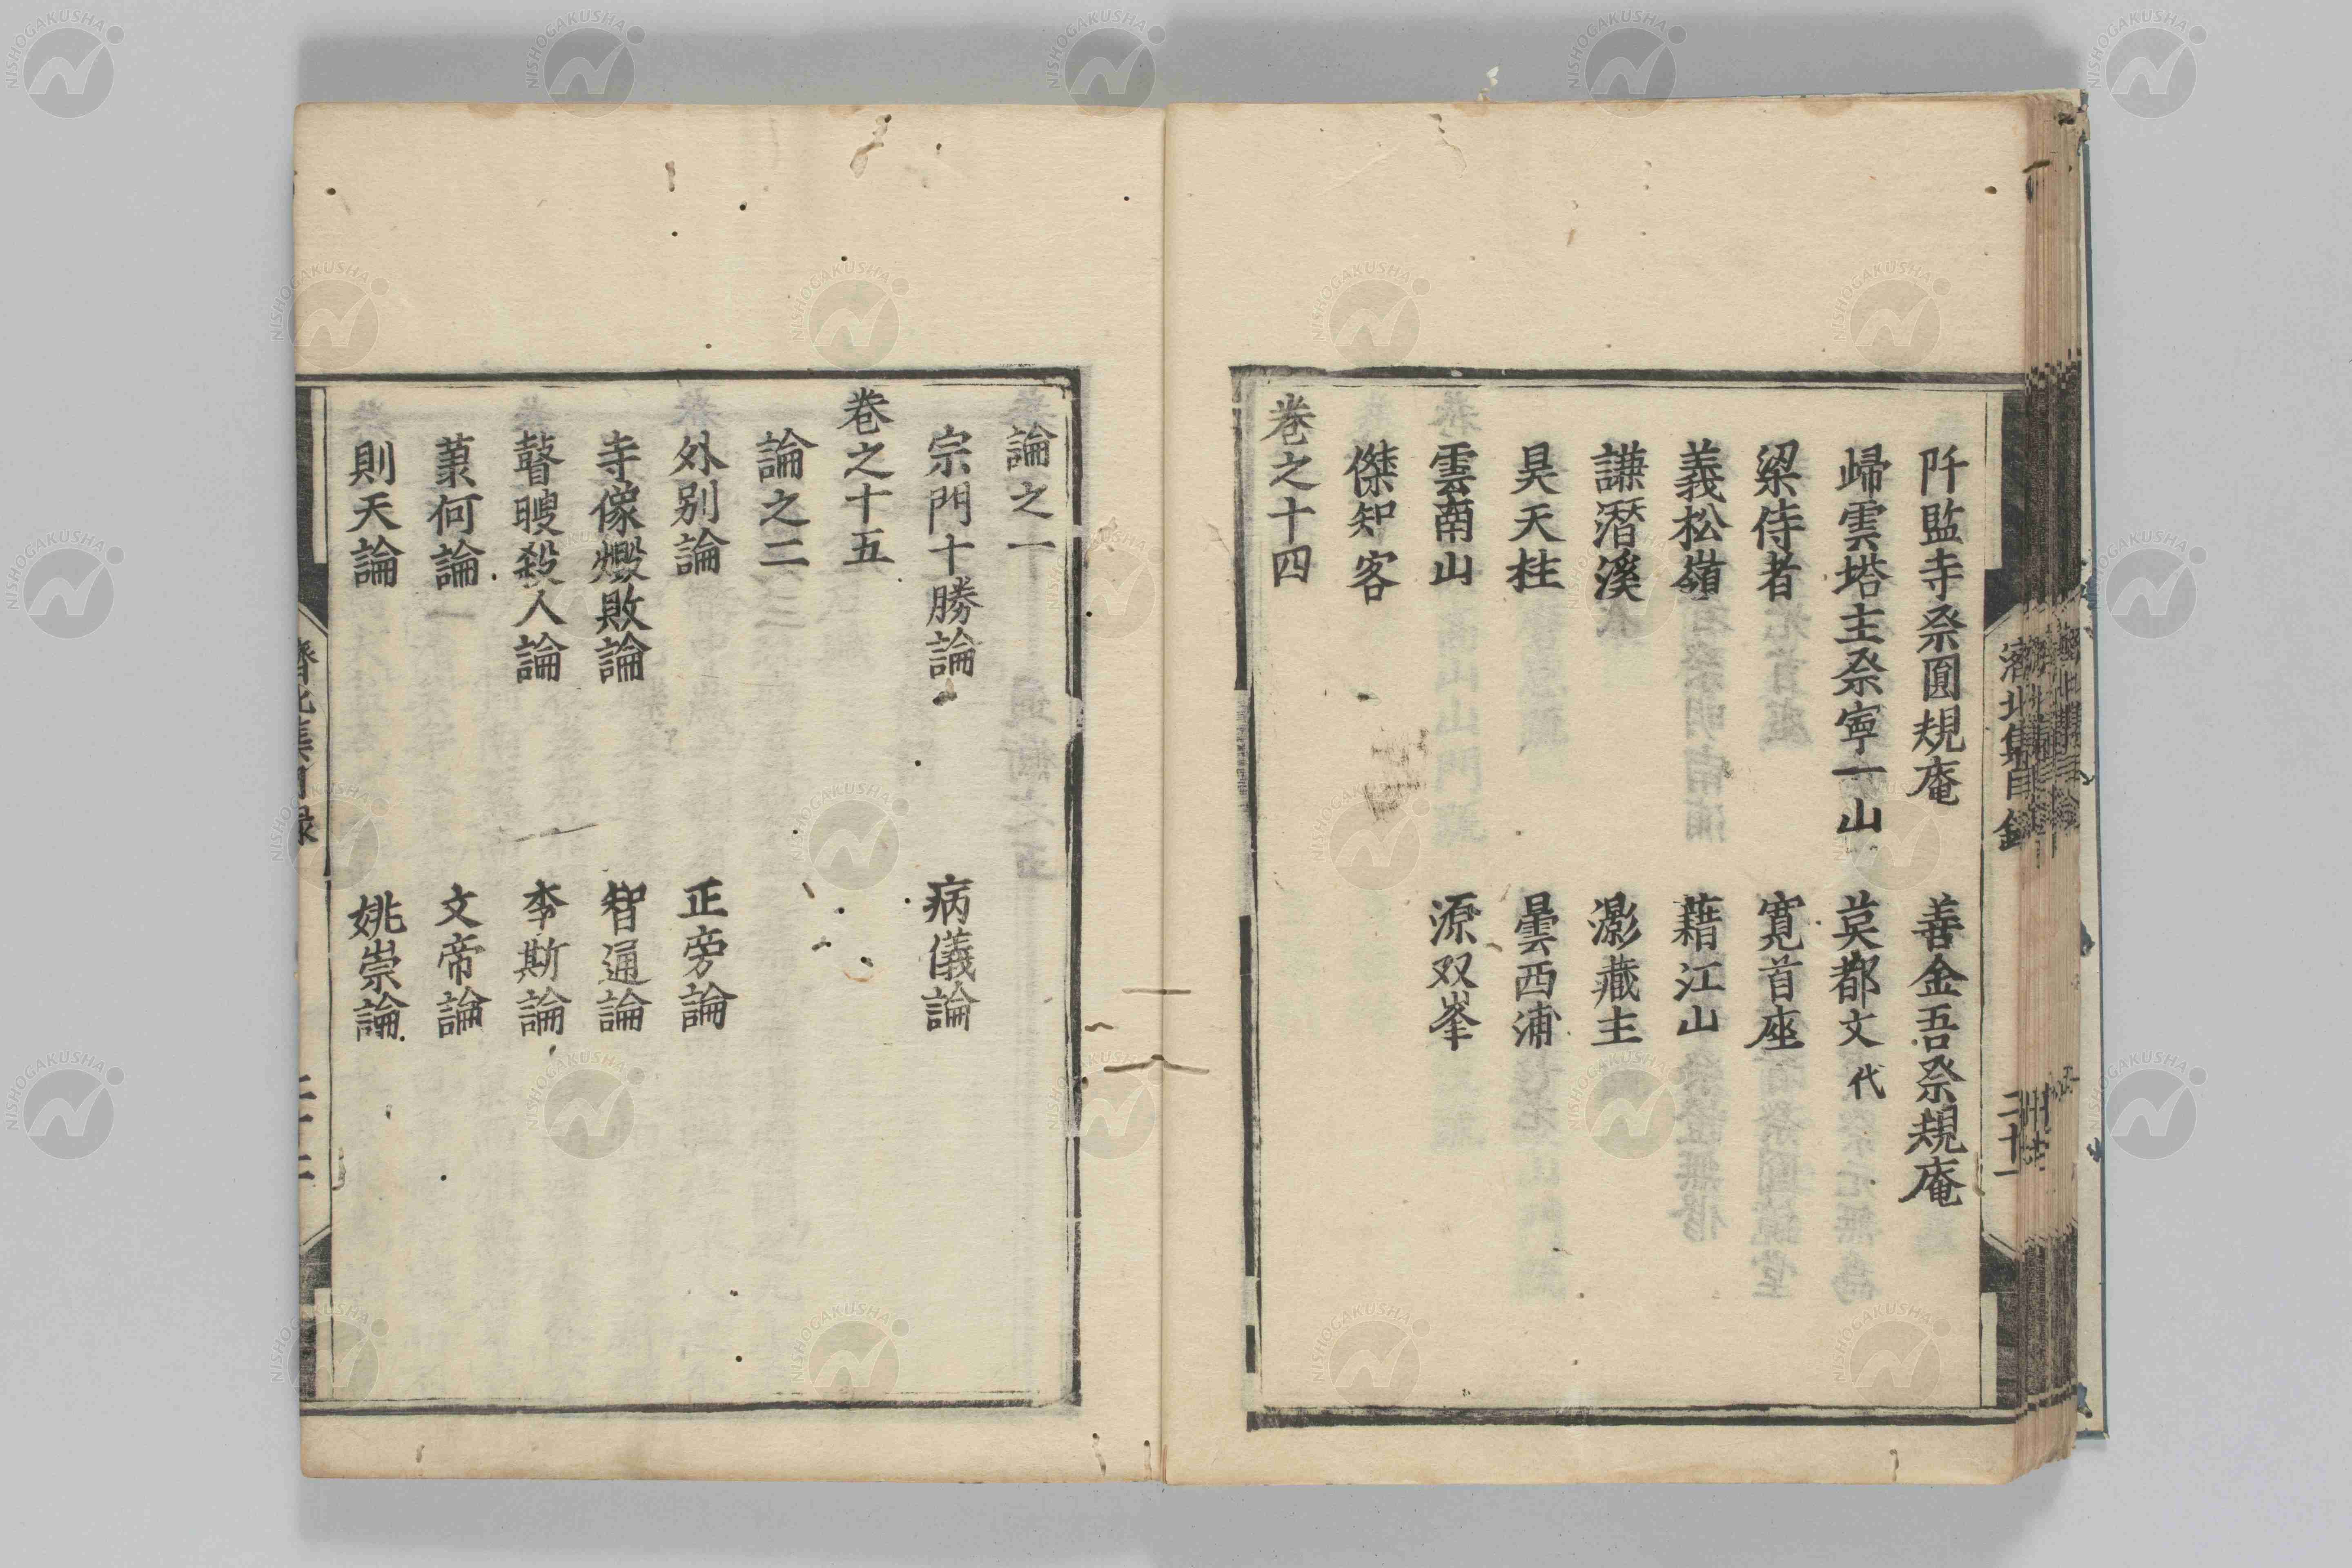 阡監寺祭圓規庵　善金吾祭規庵
歸雲塔主祭寧一山　莫都文代
梁侍者　寛首座
義松嶺　藉江山
謙潛溪　澎藏主
昊天柱　曇西浦
雲南山　源双峯
傑知客
卷之十四
論之一
宗門十勝論　病儀論
卷之十五
論之二
外别論　正旁論
寺像燬敗論　智通論
瞽瞍殺人論　李斯論
蕭何論　文帝論
則天論　姚崇論
濟北集目錄
三十一
NISHOGAKUSHA